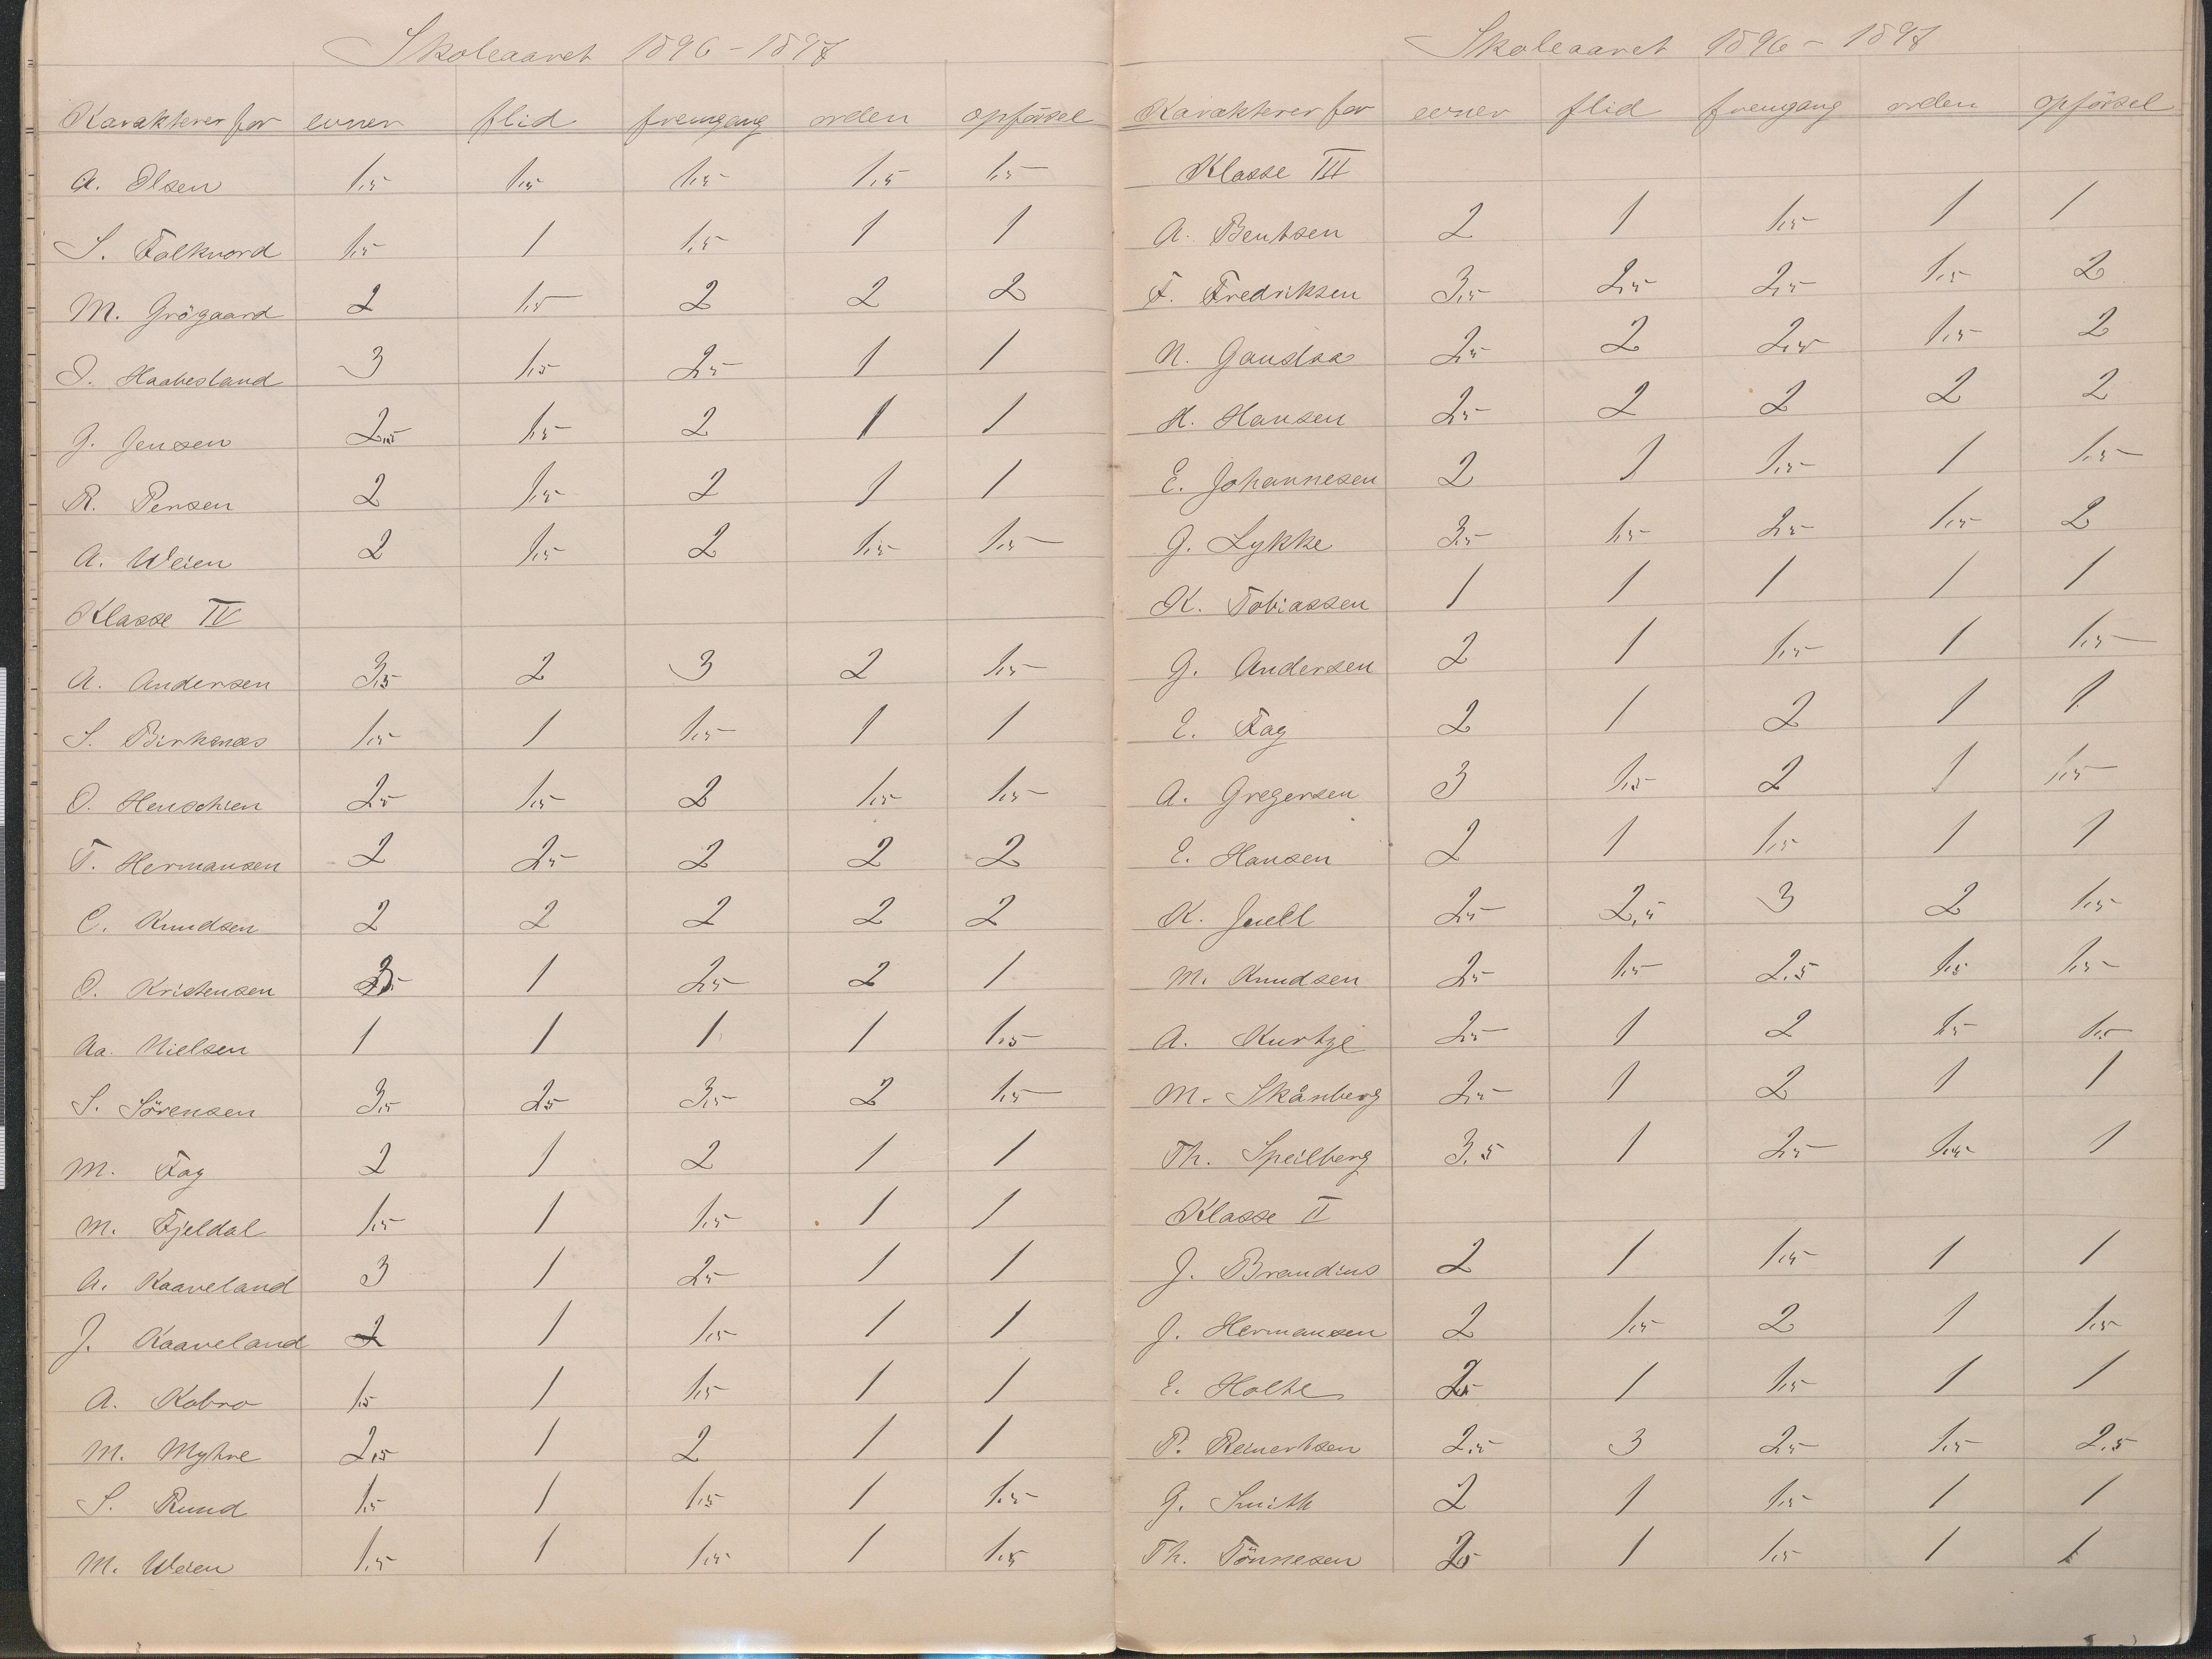 Skoleaaret 1896-1897
Karakterer for evner flid fremgang orden opförsel
A. Olsen 1,5 1,5 1,5 1,5 1,5
S. Falkvord 1,5 1 1,5 1 1
M. Grögaard 2 1,5 2 2 2
I. Haabesland 3 1,5 2,5 1 1
J. Jensen 2,5 1,5 2 1 1
R. Pensen 2 1,5 2 1 1
A. Weien 2 1,5 2 1,5 1,5
Klasse IV
A. Andersen 3,5 2 3 2 1,5
S. Birkenæs 1,5 1 1,5 1 1
O. Henschien 2,5 1,5 2 1,5 1,5
T. Hermansen 2 2,5 2 2 2
C. Knudsen 2 2 2 2 2
O. Kristensen 1 2,5 2 1
Aa. Nielsen 1 1 1 1 1,5
S. Sörensen 3,5 2,5 3,5 2 1,5
M. Fag 2 1 2 1 1
M. Fjeldal 1,5 1 1,5 1 1
A. Kaaveland 3 1 2,5 1 1
J. Kaaveland 2 1 1,5 1 1
A. Kobro 1,5 1 1,5 1 1
M. Myhre 2,5 1 2 1 1
S. Rund 1,5 1 1,5 1 1,5
M. Weien 1,5 1 1,5 1 1,5
Skoleaaret 1896-1897
Karakterer for evner flid fremgang orden opförsel
Klasse III
A. Bentsen 2 1 1,5 1 1
F. Fredriksen 3,5 2,5 2,5 1,5 2
N. Gausdaa 2,5 2 2,5 1,5 2
H. Hansen 2,5 2 2 2 2
E. Johannesen 2 1 1,5 1 1,5
G. Lykke 3,5 1,5 2,5 1,5 2
K. Tobiassen 1 1 1 1 1
G. Andersen 2 1 1,5 1 1,5
E. Fag 2 1 2 1 1
A. Gregersen 3 1,5 2 1 1,5
E. Hansen 2 1 1,5 1 1
K. Juell 2,5 2,5 3 2 1,5
M. Knudsen 2,5 1,5 2,5 1,5 1,5
A. Kurtze 2,5 1 2 1,5 1,5
M. Skånberg 2,5 1 2 1 1
Th. Speilberg 3,5 1 2,5 1,5 1
Klasse II
J. Brandius 2 1 1,5 1 1
J. Hermansen 2 1,5 2 1 1,5
E. Holte 2,5 1 1,5 1 1
P. Reinertsen 2,5 3 2,5 1,5 2,5
G. Smith 2 1 1,5 1 1
Th. Tönnesen 2,5 1 1,5 1 1